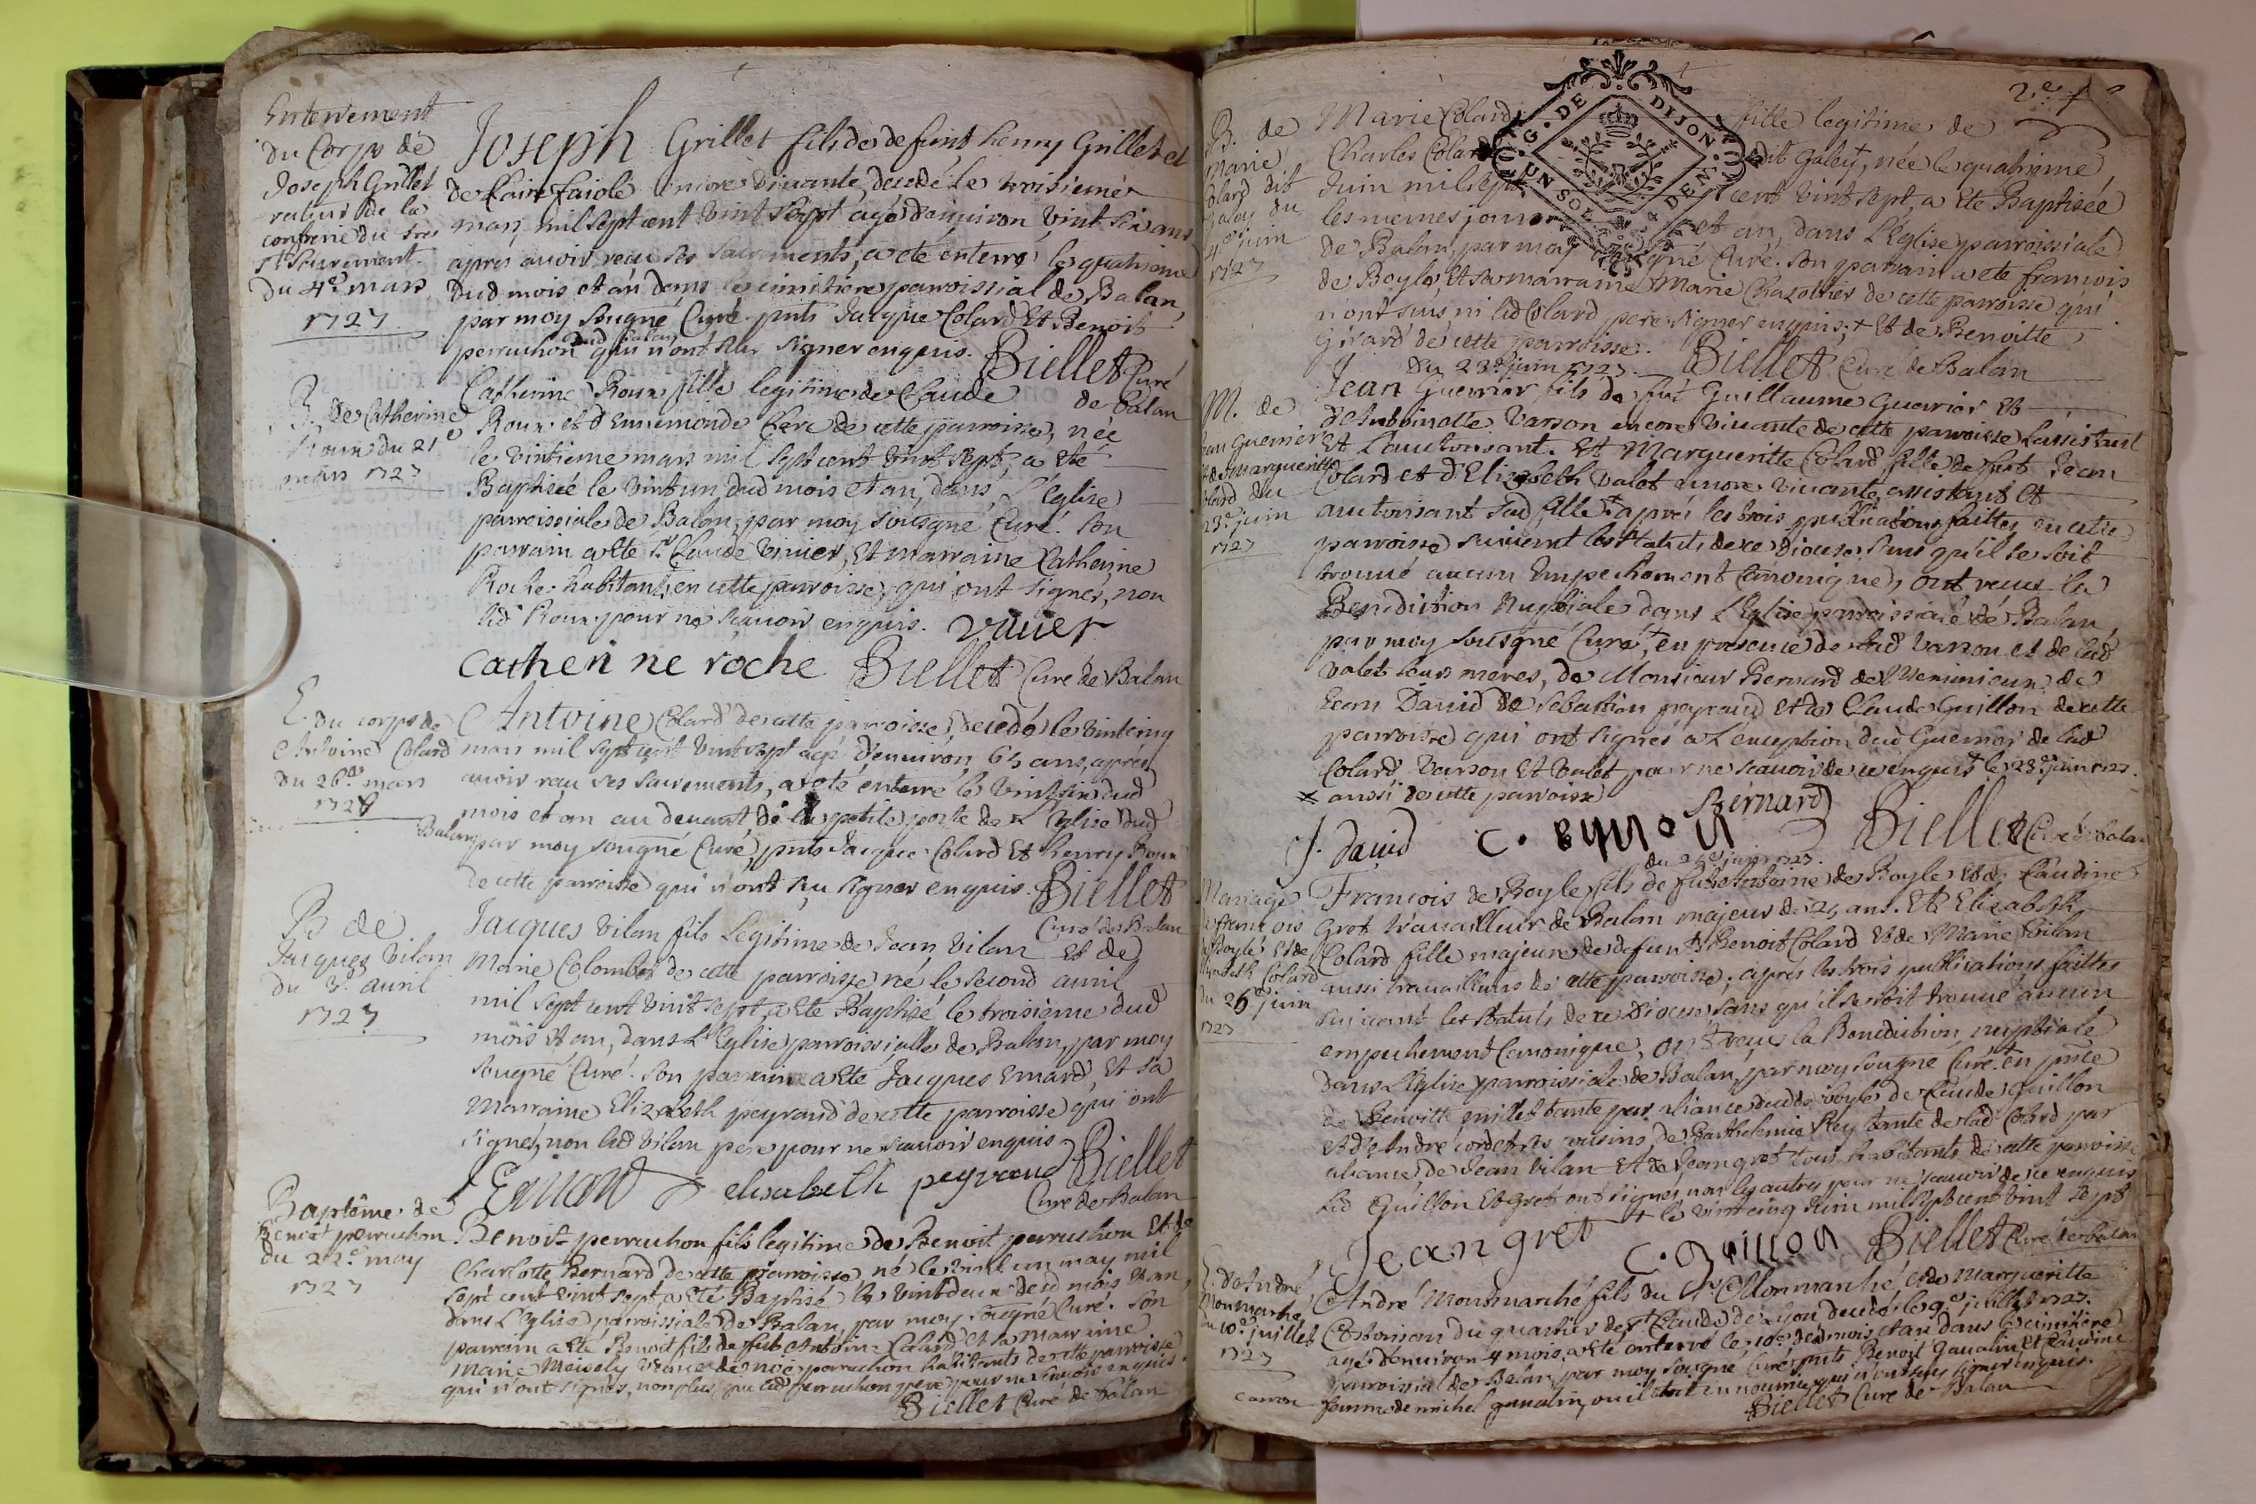 Enterrement
du Corps de
Joseph Grillet
de la
confrerie du tres
St Sacrement
du 4e mars
1727
Joseph Grillet fils de defunt henry Grillet et
de Claire faiole encore vivante, decedé le troisieme
mars mil sept cent vint sept agé d'environ vint six ans
apres avoir receu ses sacrements, a eté enterré le quatrieme
dud mois et an dans le cimitiere parroissial de Balan,
par moy sousgné Curé. pnts Jacque Colard Et Benoit
perruchon qui n'ont sceu signer enquis. Biellet Curé
de Balan
B. de Catherine
Roux du 21e
mars 1727
Catherine Roux fille legitime de Claude
Roux et d'Ennemonde Clerc de cette parroisse, née
le vintieme mars mil sept cent vint sept, a eté
Baptisée le vint un dud mois et an, dans L'Eglise
parroissiale de Balan, par moy sousgné Curé. son
parrain a eté Sr Claude vivier, Et marraine Catherine
Roche habitants en cette parroisse, qui ont signés, non
led Roux pour ne scavoir enquis. vivier
catherine roche Biellet Curé de Balan
E. du corps de
Antoine Colard
du 26e mars
1727
Antoine Colard de cette parroisse, decedé le vintcinq
mars mil sept cent vint sept agé d'environ 65 ans, aprés
avoir receu ses sacrements, a eté enterré le vint six dud
mois et an au devant de la petite porte de L'Eglise dud
Balan, par moy sousgné Curé, pnts Jacque Colard Et henry Roux
de cette parroisse qui n'ont sceu signer enquis. Biellet
Curé de Balan
B. de
Jacques vilan
du 3e avril
1727
Jacques vilan fils Legitime de Jean vilan Et de
Marie Colomber de cette parroisse né le second avril
mil sept cent vint sept, a eté Baptisé le troisieme dud
mois et an, dans L'Eglise parroissialle de Balan, par moy
sousgné Curé. son parrain a eté Jacques Emard, Et sa
Marraine Elizabeth peyraud de cette parroisse qui ont
signés, non led vilan pere pour ne scavoir enquis
Emard elisabeth peyraud Biellet
Curé de Balan
Baptême de
Benoit perruchon
du 22e may
1727
Benoit perruchon fils legitime de Benoit perruchon Et de
Charlotte Bernard de cette parroisse, né le vint un may mil
sept cent vint sept, a eté Baptisé le vint deux dud mois et an,
dans L'Eglise parroissiale de Balan, par moy sousgné Curé. son
parrain a eté Benoit fils de fut Antoine Colard et sa marraine
Marie Meisely veuve de noé perruchon habitants de cette parroisse
qui n'ont signés, non plus que led perruchon pere pour ne scavoir enquis.
Biellet Curé de Balan
2e
B. de
Marie
Colard dit
Galoy du
4e juin
1727
Marie Colard fille legitime de
Charles Colard dit Galey, née le quatrieme
Juin mil sept cent vint sept, a eté Baptisée
les memes jour et an, dans L'Eglise parroissiale
de Balan, par moy sousgné Curé. son parrain a eté francois
de Boyle, Et sa marraine Marie Chazottier de cette parroisse qui
n'ont sceus ni led Colard pere signer enquis; + Et de Benoitte
Girard de cette parroisse. Biellet Curé de Balan
G. DE DIJON
UN SOL DEN.
M. de
Jean Guerrier
et de Marguerite
Colard du
23e juin
1727
du 23e juin 1727
Jean Guerrier fils de fut Guillaume Guerrier Et
d'Anthoinette Varson encore vivante de cette parroisse L'assistant
Et L'authorisant. Et Margueritte Colard fille de fut Jean
Colard et d'Elizabeth valet encore vivante, assistant et
authorisant sad fille + aprés les trois publications faittes en cette
parroisse suivant les statuts de ce Diocese sans qu'il se soit
trouvé aucun Empechement Canonique, ont receus la
Benediction Nuptiale dans L'Eglise parroissiale de Balan
par moy sousgné Curé, en presence de lad varson et de lad
valet leurs meres, de Monsieur Bernard de
Jean David de Sebastien peyraud et de Claude Guillon de cette
parroisse qui ont signés a L'exception dud Guerrier de lad
Colard, varson Et valet pour ne scavoir de ce enquis le 23e juin 1727.
+ aussi de cette parroisse
Bernard
J. david C. Biellet Curé de Balan
Mariage
de francois
de Boyle Et de
Elizabeth Colard
du 26e juin
1727
Francois de Boyle fils de fut Anthoine de Boyle Et de Claudine
Gret travailleur de Balan majeur de 25 ans. Et Elizabeth
Colard fille majeure de defunt Benoit Colard et de Marie Vilan
aussi travailleurs de cette parroisse; aprés les trois publications faittes
suivant les statuts de ce Diocese sans qu'il se soit trouvé aucun
empechement Canonique, ont receu la Benediction nuptiale
dans L'Eglise parroissiale de Balan, par moy sousgné Curé. en pnce
de Benoitte millet tante par aliance dud de Boyle de Claude Guillon
et d'Andre cordet ses cousins, de Barthelemie Rey tante de lad Colard par
aliance, de Jean vilan Et de Jean gret tous habitants de cette parroisse
led Guillon Et gret ont signés, non les autres pour ne scavoir de ce enquis
+ le vint cinq Juin mil sept cent vint sept
Jean gret C. Guillon Biellet Curé de Balan
E. d'André
Monmarché
du 10e juillet
1727
André Monmarché fils du Sr Monmarché Et de Margueritte
du quartier de St Claude de Lyon decedé le 9e juillet 1727.
agé d'environ 4 mois, a eté enterré le 10e dud mois et an dans le cimitiere
parroissial de Balan, par moy sousgné Curé, pnts Benoit Gaudin Et Claudine
femme de michel gaudin, ou il etoit en nourrice, qui n'ont sceu signer enquis.
Biellet Curé de Balan